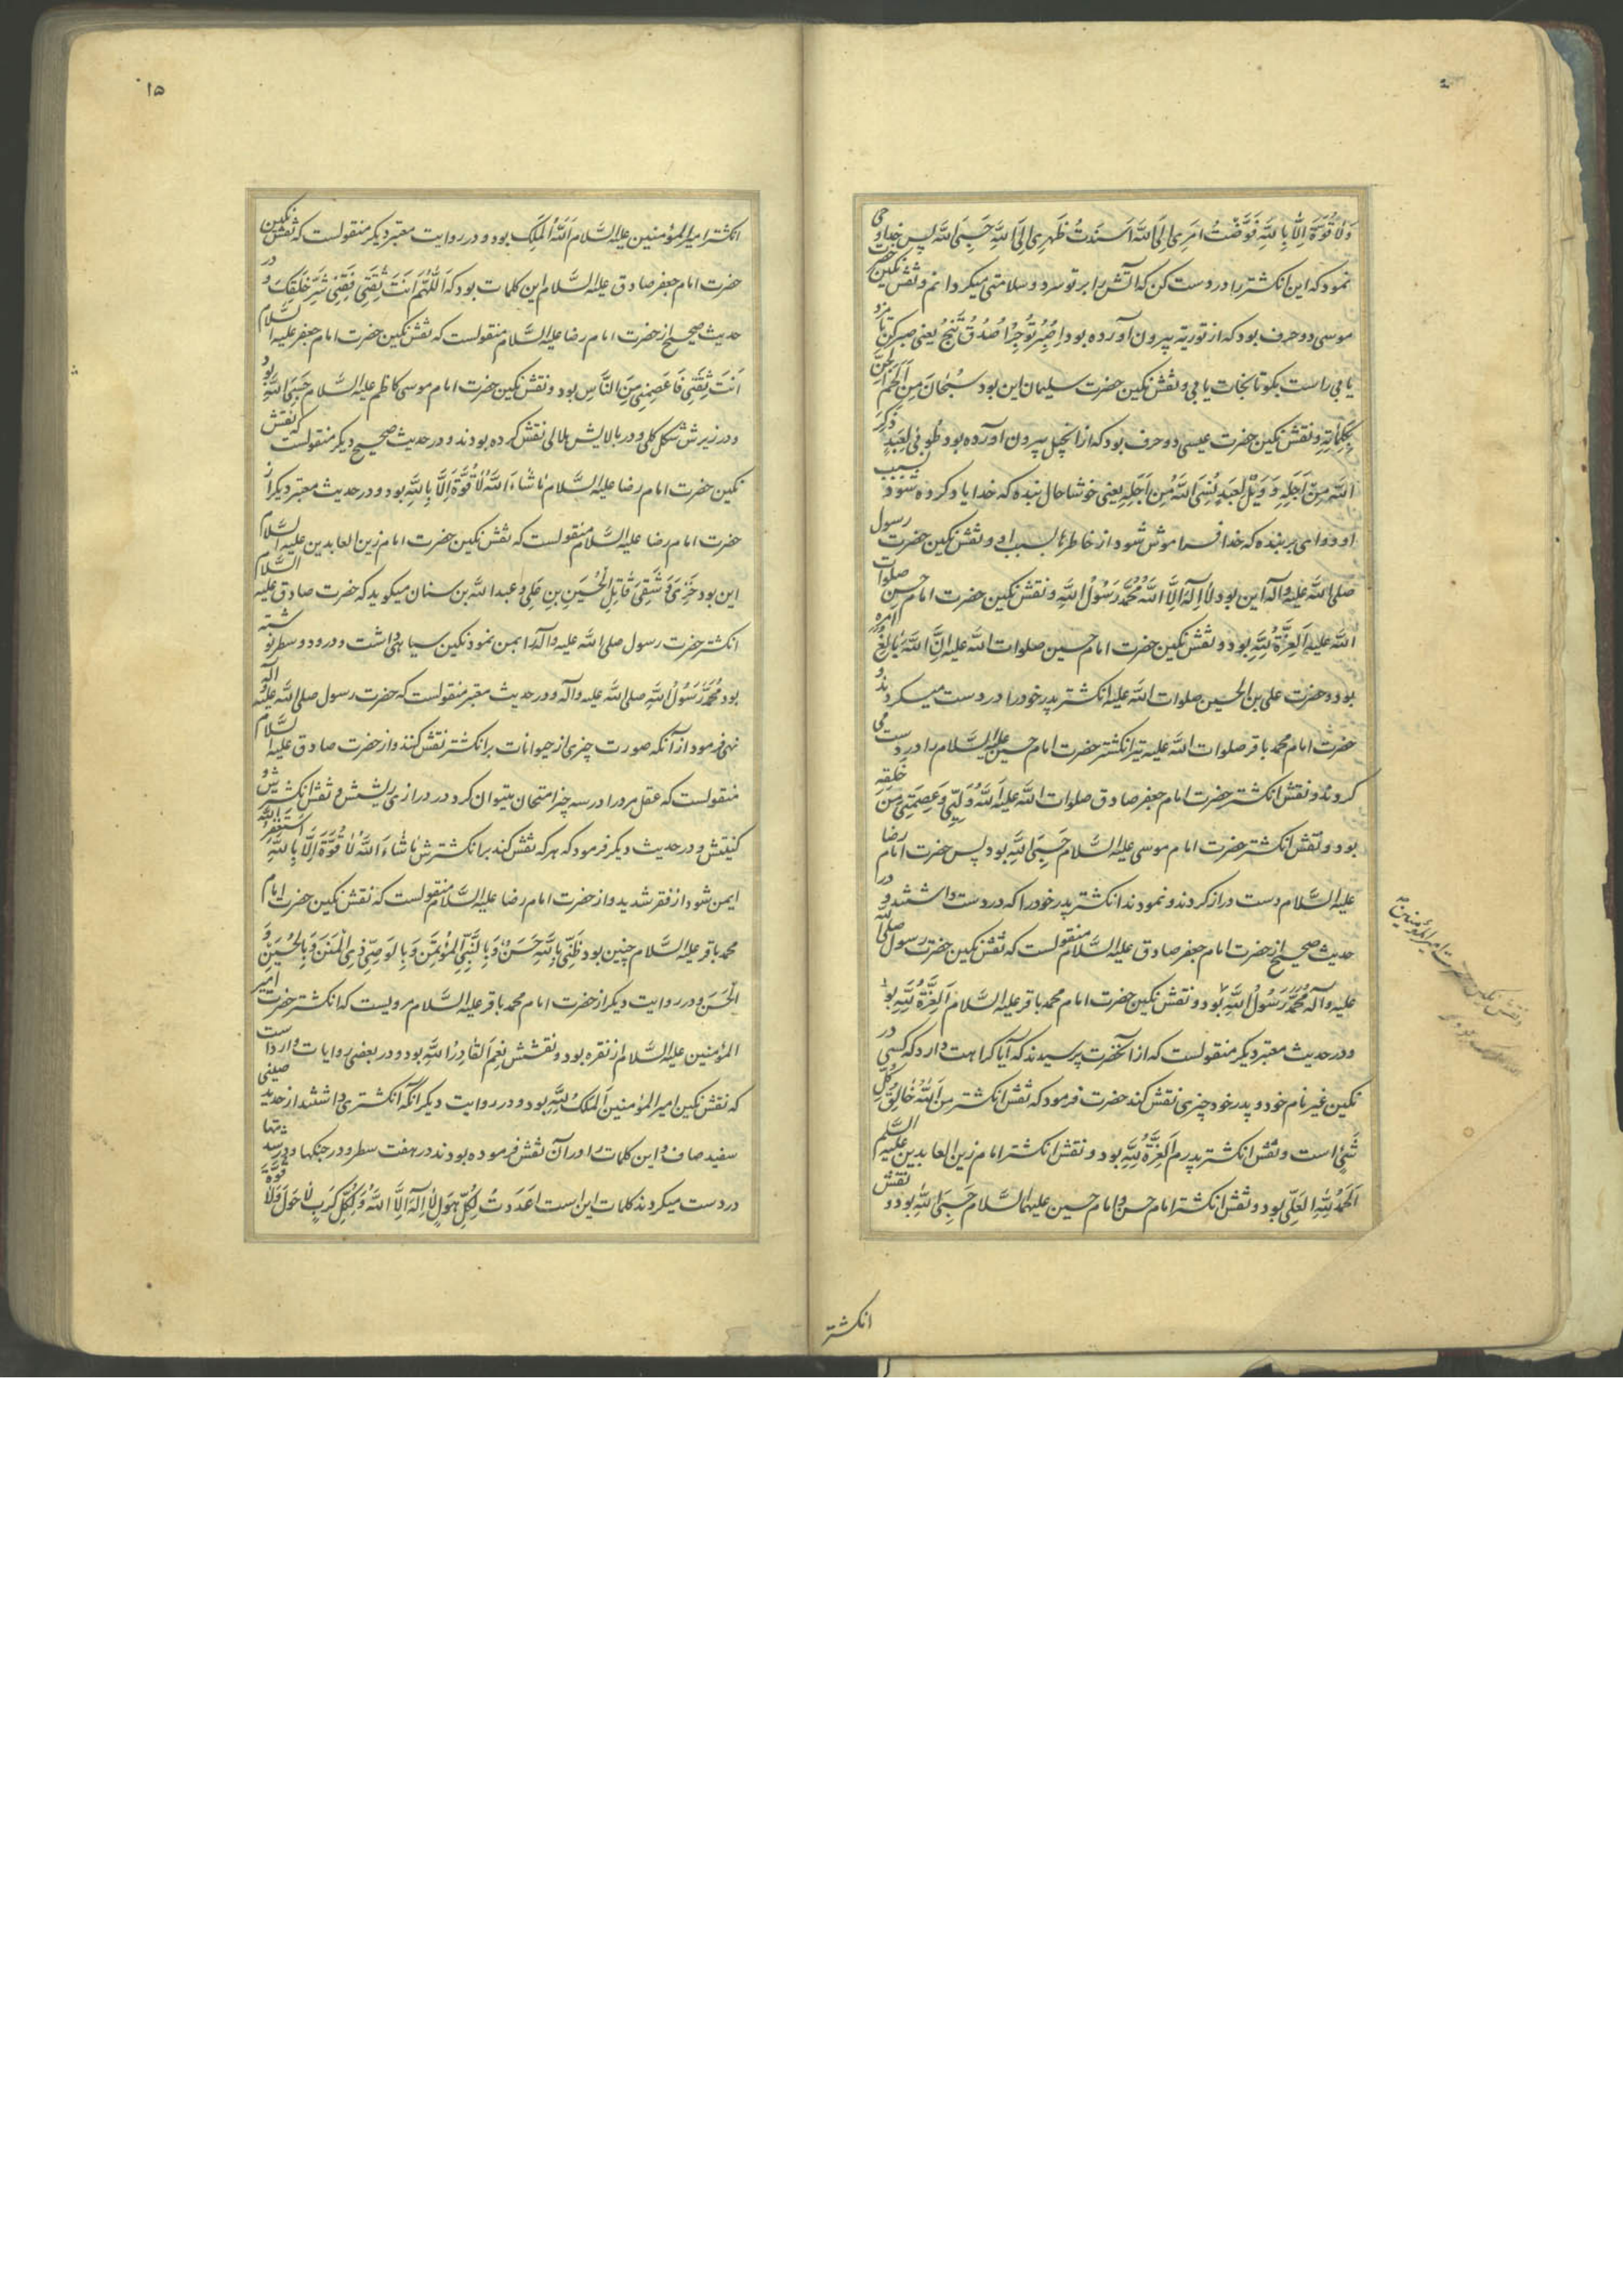 وَلَا قُوَّةَ اِلَّا بِاللَّهِ فَوَّضْتُ اَمْرِی اِلَی اللَّهِ اَسْنَدْتُ ظَهْرِی اِلَی اللَّهِ حَسْبِیَ اللَّه پس خدا وحی
نمود که این انکشتر را در دست کن که آتش را بر تو سرد و سلامتی میکردانم و نقش نکین حضرت
موسی دو حرف بود که از توریة بیرون آورده بود اِصْبِرْ تُوجَرْ اُصْدُقْ تَنْجُ یعنی صبر کن تا مزد
یابی راست بکو تا نجات یابی و نقش نکین حضرت سلیمان این بود سُبْحَانَ مَنْ اَلْجَمَ الْجِنَّ
بِکَلِمَاتِهِ و نقش نکین حضرت عیسی دو حرف بود که از انجیل بیرون آورده بود طُوبَی لِعَبْدٍ ذُکِرَ
اللَّهُ مِنْ اَجْلِهِ وَ وَیْلٌ لِعَبْدٍ نُسِیَ اللَّهُ مِنْ اَجْلِهِ یعنی خوشا حال بنده که خدا یاد کرده شود بسبب
او و وای بر بنده که خدا فراموش شود از خاطرها بسبب او و نقش نکین حضرت رسول
صلی اللَّه علیه وآله این بود لَا اِلَهَ اِلَّا اللَّهُ مُحَمَّدٌ رَسُولُ اللَّهِ و نقش نکین حضرت امام حسن صلوات
اللَّه علیه اَلْعِزَّةُ لِلَّهِ بود و نقش نکین حضرت امام حسین صلوات اللَّه علیه اِنَّ اللَّهَ بَالِغُ اَمْرِه
بود و حضرت علی بن الحسین صلوات اللَّه علیه انکشتر پدر خود را در دست میکردند و
حضرت امام محمد باقر صلوات اللَّه علیه نیز انکشتر حضرت امام حسین علیه السَّلام را در دست می
کردند و نقش انکشتر حضرت امام جعفر صادق صلوات اللَّه علیه اَللَّهُ وَلِیِّی وَ عِصْمَتِی مِنْ خَلْقِهِ
بود و نقش انکشتر حضرت امام موسی علیه السَّلام حَسْبِیَ اللَّهُ بود پس حضرت امام رضا
علیه السَّلام دست دراز کردند و نمودند انکشتر پدر خود را که در دست داشتند و در
حدیث صحیح از حضرت امام جعفر صادق علیه السَّلام منقولست که نقش نکین حضرت رسول صلی اللَّه
علیه وآله مُحَمَّدٌ رَسُولُ اللَّهِ بود و نقش نکین حضرت امام محمد باقر علیه السَّلام اَلْعِزَّةُ لِلَّهِ بود
و در حدیث معتبر دیکر منقولست که از آنحضرت پرسیدند که آیا کراهت دارد که کسی در
نکین غیر نام خود و پدر خود چیزی نقش کند حضرت فرمود که نقش انکشتر من اَللَّهُ خَالِقُ کُلِّ
شَیْءٍ است و نقش انکشتر پدرم اَلْعِزَّةُ لِلَّهِ بود و نقش انکشتر امام زین العابدین علیه السلم
اَلْحَمْدُ لِلَّهِ الْعَلِیِّ بود و نقش انکشتر امام حسن و امام حسین علیهما السَّلام حَسْبِیَ اللَّهُ بود و نقش
انکشتر
ونقش نکین حضرت امیر المؤمنین
۱۵
انکشتر امیر المؤمنین علیه السَّلام اَللَّهُ الْمَلِکُ بود و در روایت معتبر دیکر منقولست که نقش نکین
حضرت امام جعفر صادق علیه السَّلام این کلمات بود که اَللَّهُمَّ اَنْتَ ثِقَتِی فَقِنِی شَرَّ خَلْقِکَ و در
حدیث صحیح از حضرت امام رضا علیه السَّلام منقولست که نقش نکین حضرت امام جعفر علیه السَّلام
اَنْتَ ثِقَتِی فَاعْصِمْنِی مِنَ النَّاسِ بود و نقش نکین حضرت امام موسی کاظم علیه السَّلام حَسْبِیَ اللَّهُ بود
و در زیرش شکل کلی و در بالایش هلالی نقش کرده بودند و در حدیث صحیح دیکر منقولست که نقش
نکین حضرت امام رضا علیه السَّلام مَا شَاءَ اللَّهُ لَا قُوَّةَ اِلَّا بِاللَّهِ بود و در حدیث معتبر دیکر از
حضرت امام رضا علیه السَّلام منقولست که نقش نکین حضرت امام زین العابدین علیه السَّلام
این بود خَزِیَ وَ شَقِیَ قَاتِلُ الْحُسَیْنِ بْنِ عَلِی و عبد اللَّه بن سنان میکوید که حضرت صادق علیه السَّلام
انکشتر حضرت رسول صلی اللَّه علیه وآله را بمن نمود نکین سیاهی داشت و در دو سطر نوشته
بود مُحَمَّدٌ رَسُولُ اللَّهِ صلی اللَّه علیه وآله و در حدیث معتبر منقولست که حضرت رسول صلی اللَّه علیه وآله
نهی فرمود از آنکه صورت چیزی از حیوانات بر انکشتر نقش کنند و از حضرت صادق علیه السَّلام
منقولست که عقل مرد را در سه چیز امتحان میتوان کرد در درازی ریشش و نقش انکشترش و
کنیتش و در حدیث دیکر فرمود که هر که نقش کند بر انکشترش مَا شَاءَ اللَّهُ لَا قُوَّةَ اِلَّا بِاللَّهِ اَسْتَغْفِرُ اللَّهَ
ایمن شود از فقر شدید و از حضرت امام رضا علیه السَّلام منقولست که نقش نکین حضرت امام
محمد باقر علیه السَّلام چنین بود ظَنِّی بِاللَّهِ حَسَنٌ وَ بِالنَّبِیِّ الْمُؤْتَمَنِ وَ بِالْوَصِیِّ ذِی الْمِنَنِ وَ بِالْحُسَیْنِ وَ
الْحَسَنِ و در روایت دیکر از حضرت امام محمد باقر علیه السَّلام مرویست که انکشتر حضرت امیر
المؤمنین علیه السَّلام از نقره بود و نقشش نِعْمَ الْقَادِرُ اللَّهُ بود و در بعضی روایات وارد است
که نقش نکین امیر المؤمنین اَلْمُلْکُ لِلَّهِ بود و در روایت دیکر آنکه انکشتری داشتند از حدید صینی
سفید صاف و این کلمات را در آن نقش فرموده بودند در هفت سطر و در جنکها و در شدتها
در دست میکردند کلمات این است اَعْدَدْتُ لِکُلِّ هَوْلٍ لَا اِلَهَ اِلَّا اللَّهُ وَ لِکُلِّ کَرْبٍ لَا حَوْلَ وَ لَا قُوَّةَ